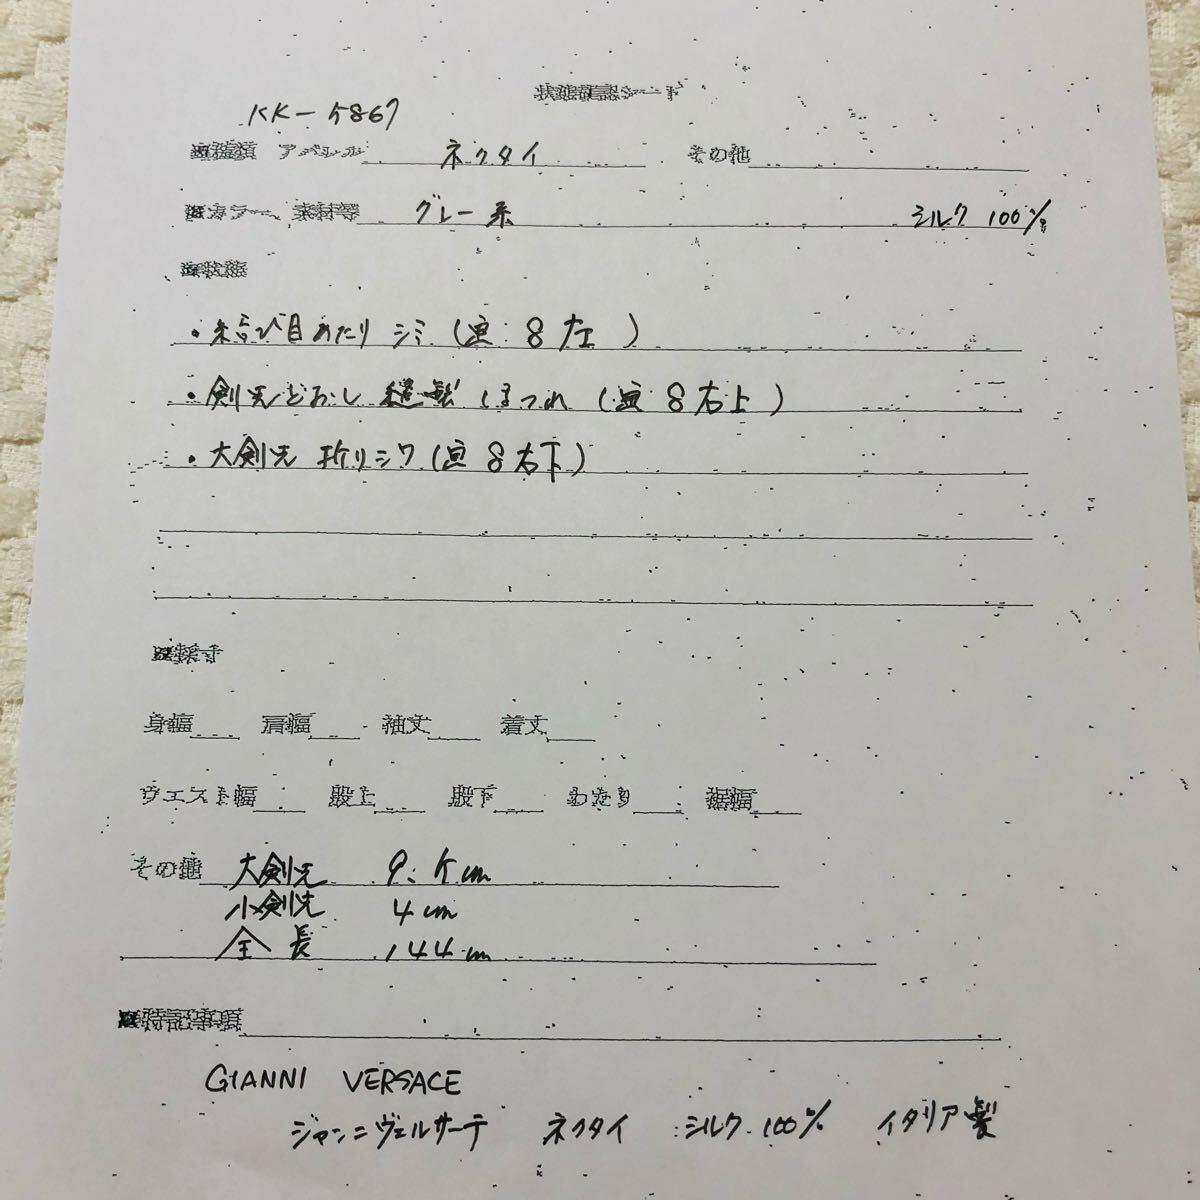 状態確認シート
KK-5867
※種類 アパレル ネクタイ その他
※カラー、素材等 グレー系 シルク 100%
※状態
・結び目あたり シミ (画:8左)
・剣先どおし 縫製 ほつれ (画:8右上)
・大剣先 折りシワ (画:8右下)
※採寸
身幅 肩幅 袖丈 着丈
ウエスト幅 股上 股下 わたり 裾幅
その他 大剣先 9.5cm
小剣先 4cm
全長 144cm
※特記事項
GIANNI VERSACE
ジャンニヴェルサーチ ネクタイ シルク 100% イタリア製